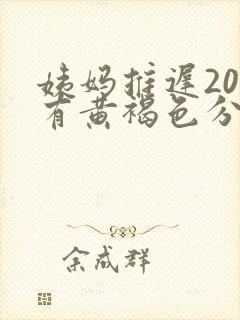 姨妈推迟20
有黄褐色分
余成群